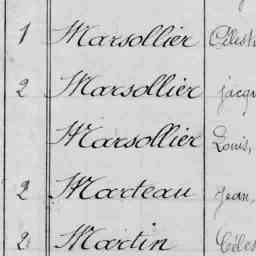 1 Marsollier Célest
2 Marsollier Jacq
Marsollier Louis,
2 Marteau Jean,
2 Martin Céles